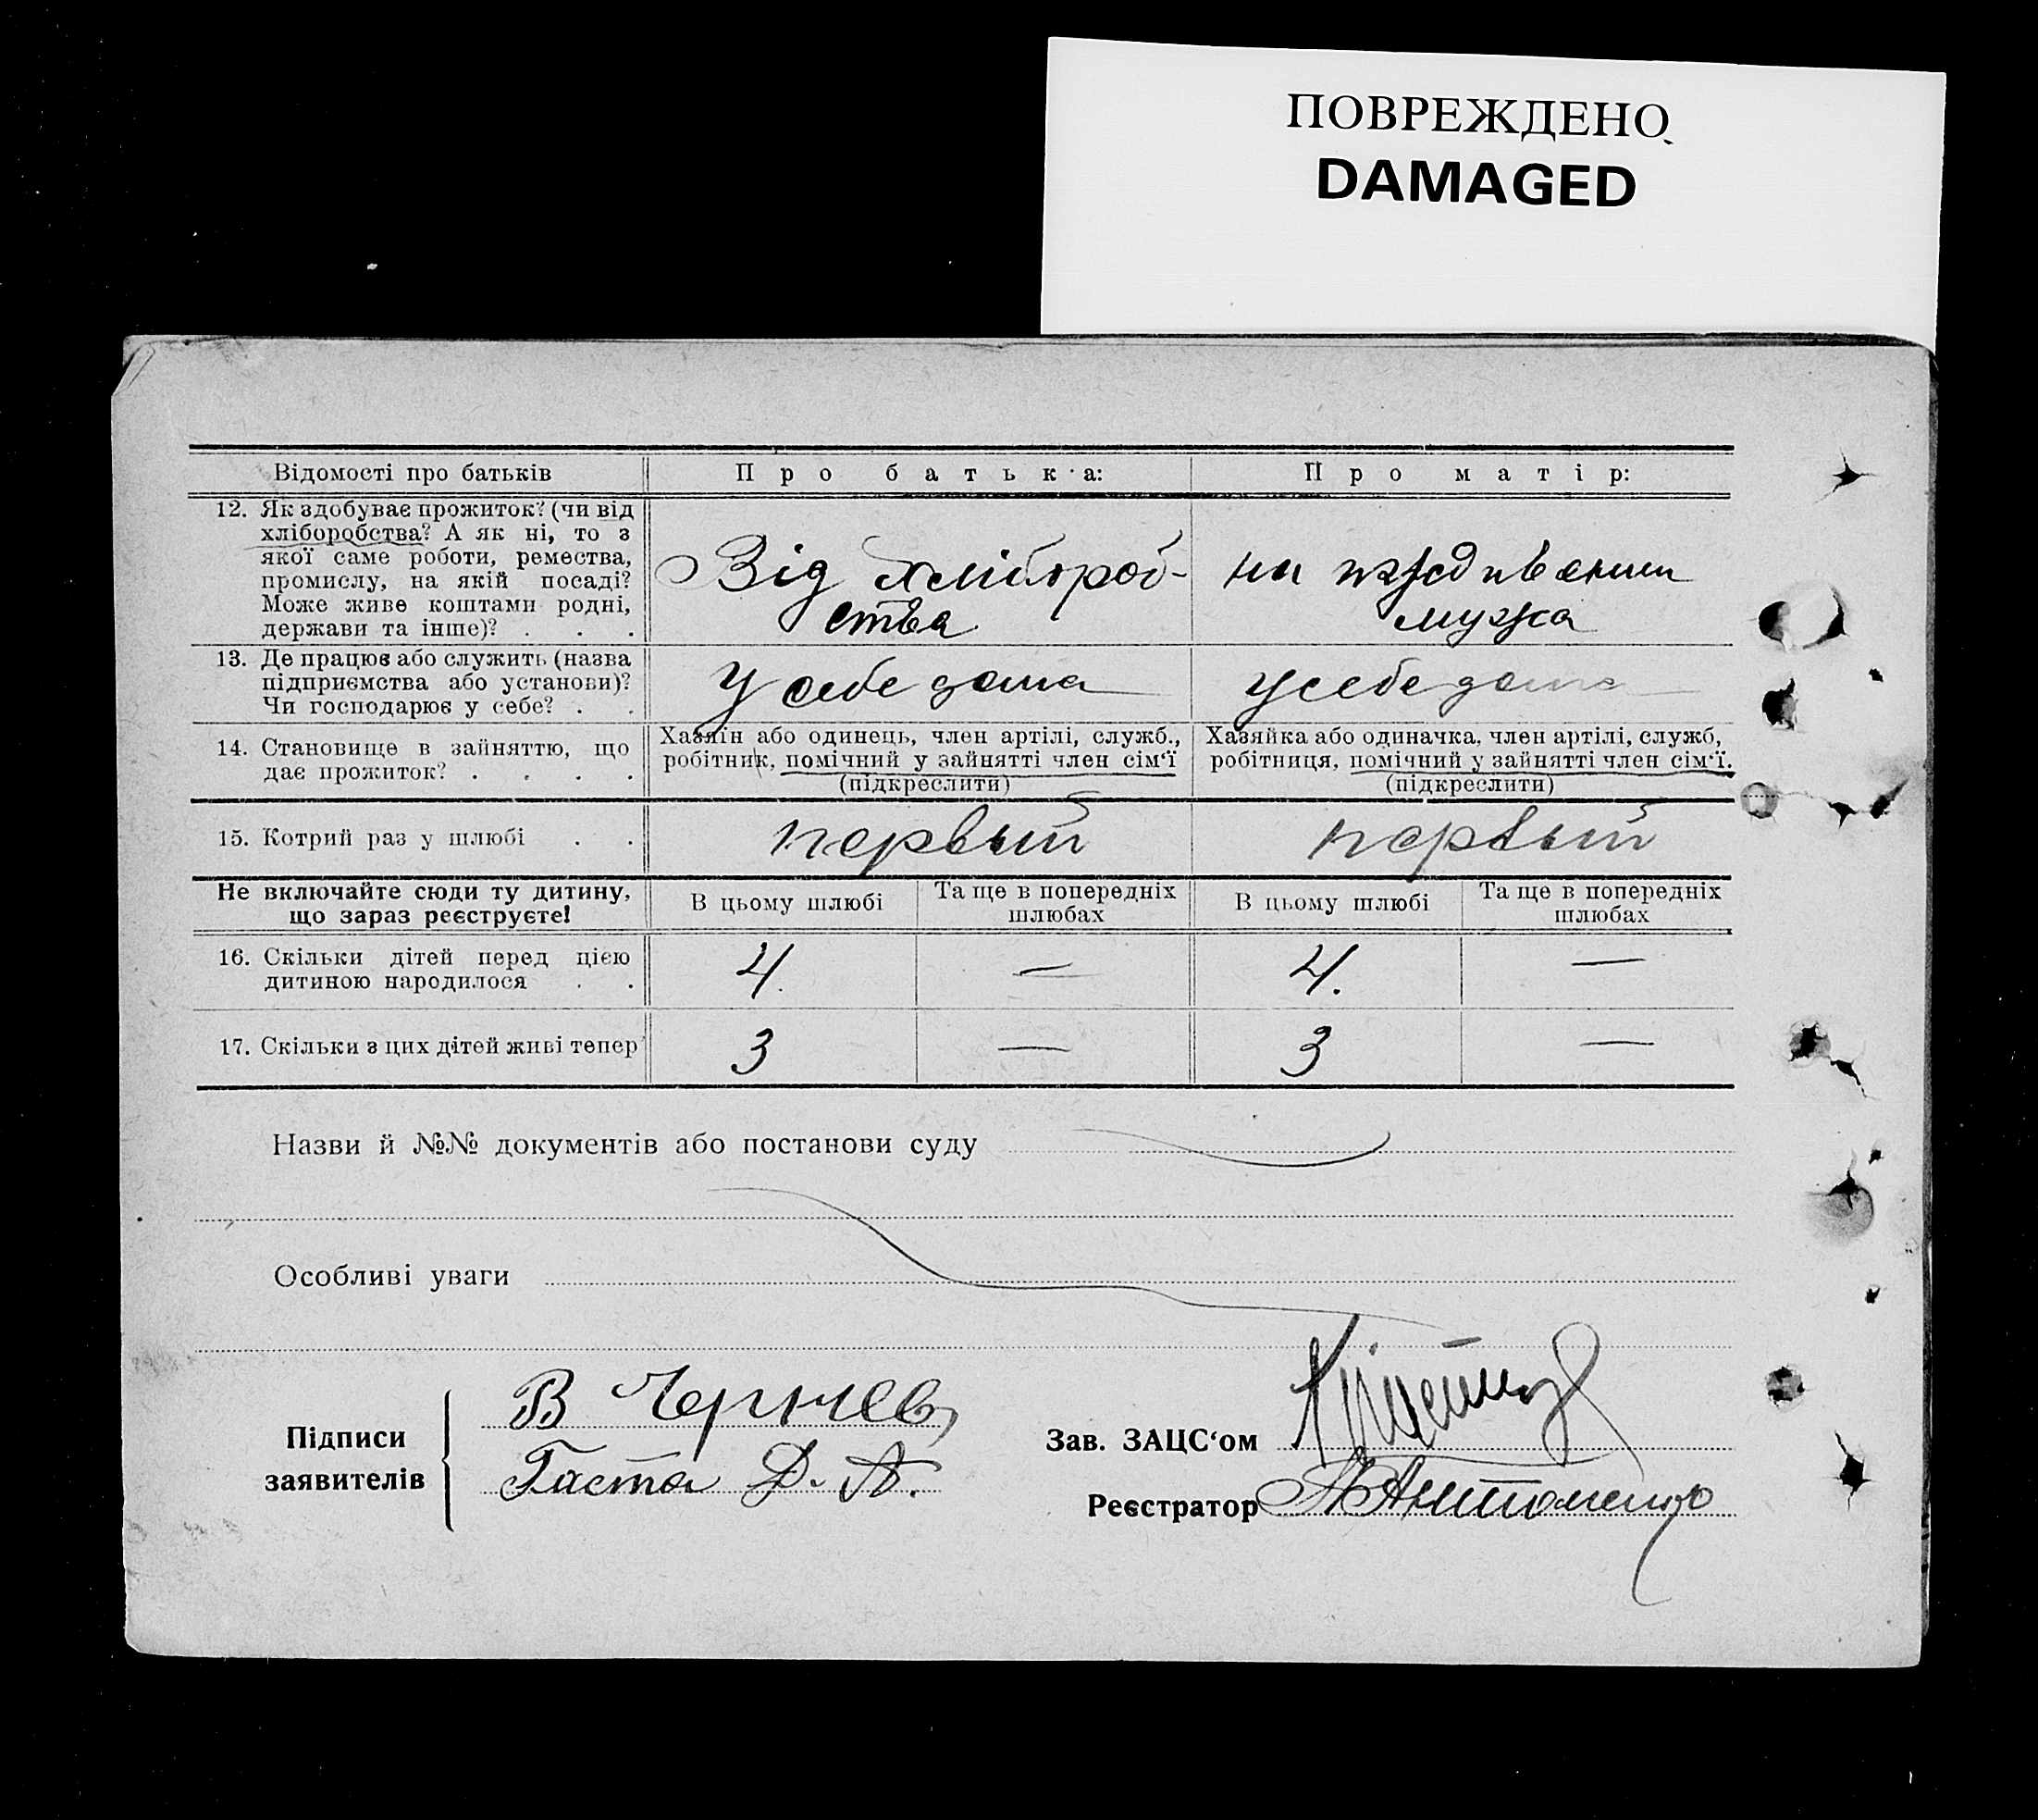 ПОВРЕЖДЕНО
DAMAGED
Відомості про батьків
Про батька:
Про матір:
12. Як здобуває прожиток? (чи від
хліборобства? А як ні, то з
якої саме роботи, ремества,
промислу, на якій посаді?
Може живе коштами родні,
держави та інше)? . . .
Від хлібороб-
ства
на
мужа
13. Де працює або служить (назва
підприємства або установи)?
Чи господарює у себе? . .
У себе дома
у себе дома
14. Становище в зайняттю, що
дає прожиток? . . . .
Хазяїн або одинець, член артілі, служб.,
робітник, помічний у зайнятті член сім‘ї
(підкреслити)
Хазяйка або одиначка, член артілі, служб,
робітниця, помічний у зайнятті член сім‘ї.
(підкреслити)
15. Котрий раз у шлюбі . .
первый
первый
Не включайте сюди ту дитину,
що зараз реєструєте!
В цьому шлюбі
Та ще в попередніх
шлюбах
В цьому шлюбі
Та ще в попередніх
шлюбах
16. Скільки дітей перед цією
дитиною народилося . .
4.
—
4.
—
17. Скільки з цих дітей живі тепер
3
—
3
—
Назви й №№ документів або постанови суду
Особливі уваги
Підписи
заявителів
В
Гаста Д. А.
Зав. ЗАЦС‘ом
Реєстратор